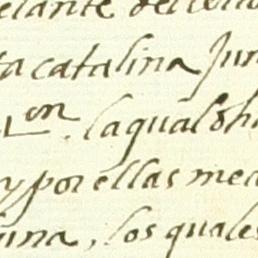 elante del
ta catalina Jun
on. la qual
y por ellas me
una, los quales